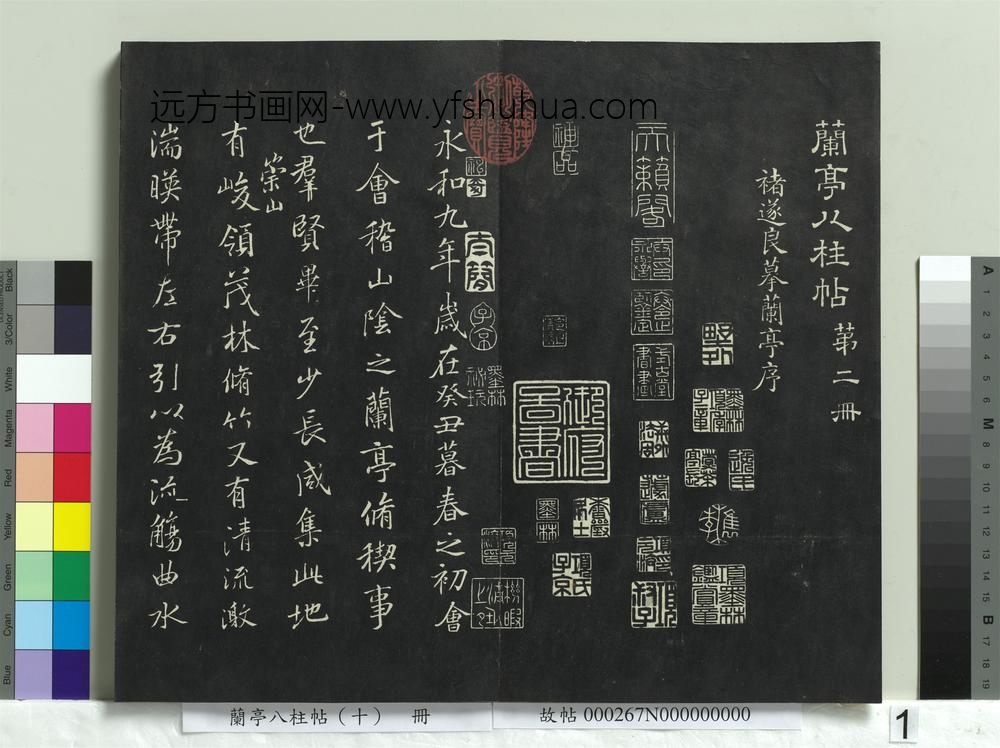 远方书画网-www.yfshuhua.com
蘭亭八柱帖 第二冊
褚遂良摹蘭亭序
天籟閣
御書
墨林
項氏
子京
子京
墨林
永和九年歲在癸丑暮春之初會
于會稽山陰之蘭亭脩稧事
也羣賢畢至少長咸集此地
有峻領茂林脩竹又有清流激
崇山
湍暎帶左右引以為流觴曲水
蘭亭八柱帖（十） 冊
故帖 000267N000000000
1
Black
3/Color
White
Magenta
Red
Yellow
Green
Cyan
Blue
A 1 2 3 4 5 6 M 8 9 10 11 12 13 14 15 B 17 18 19